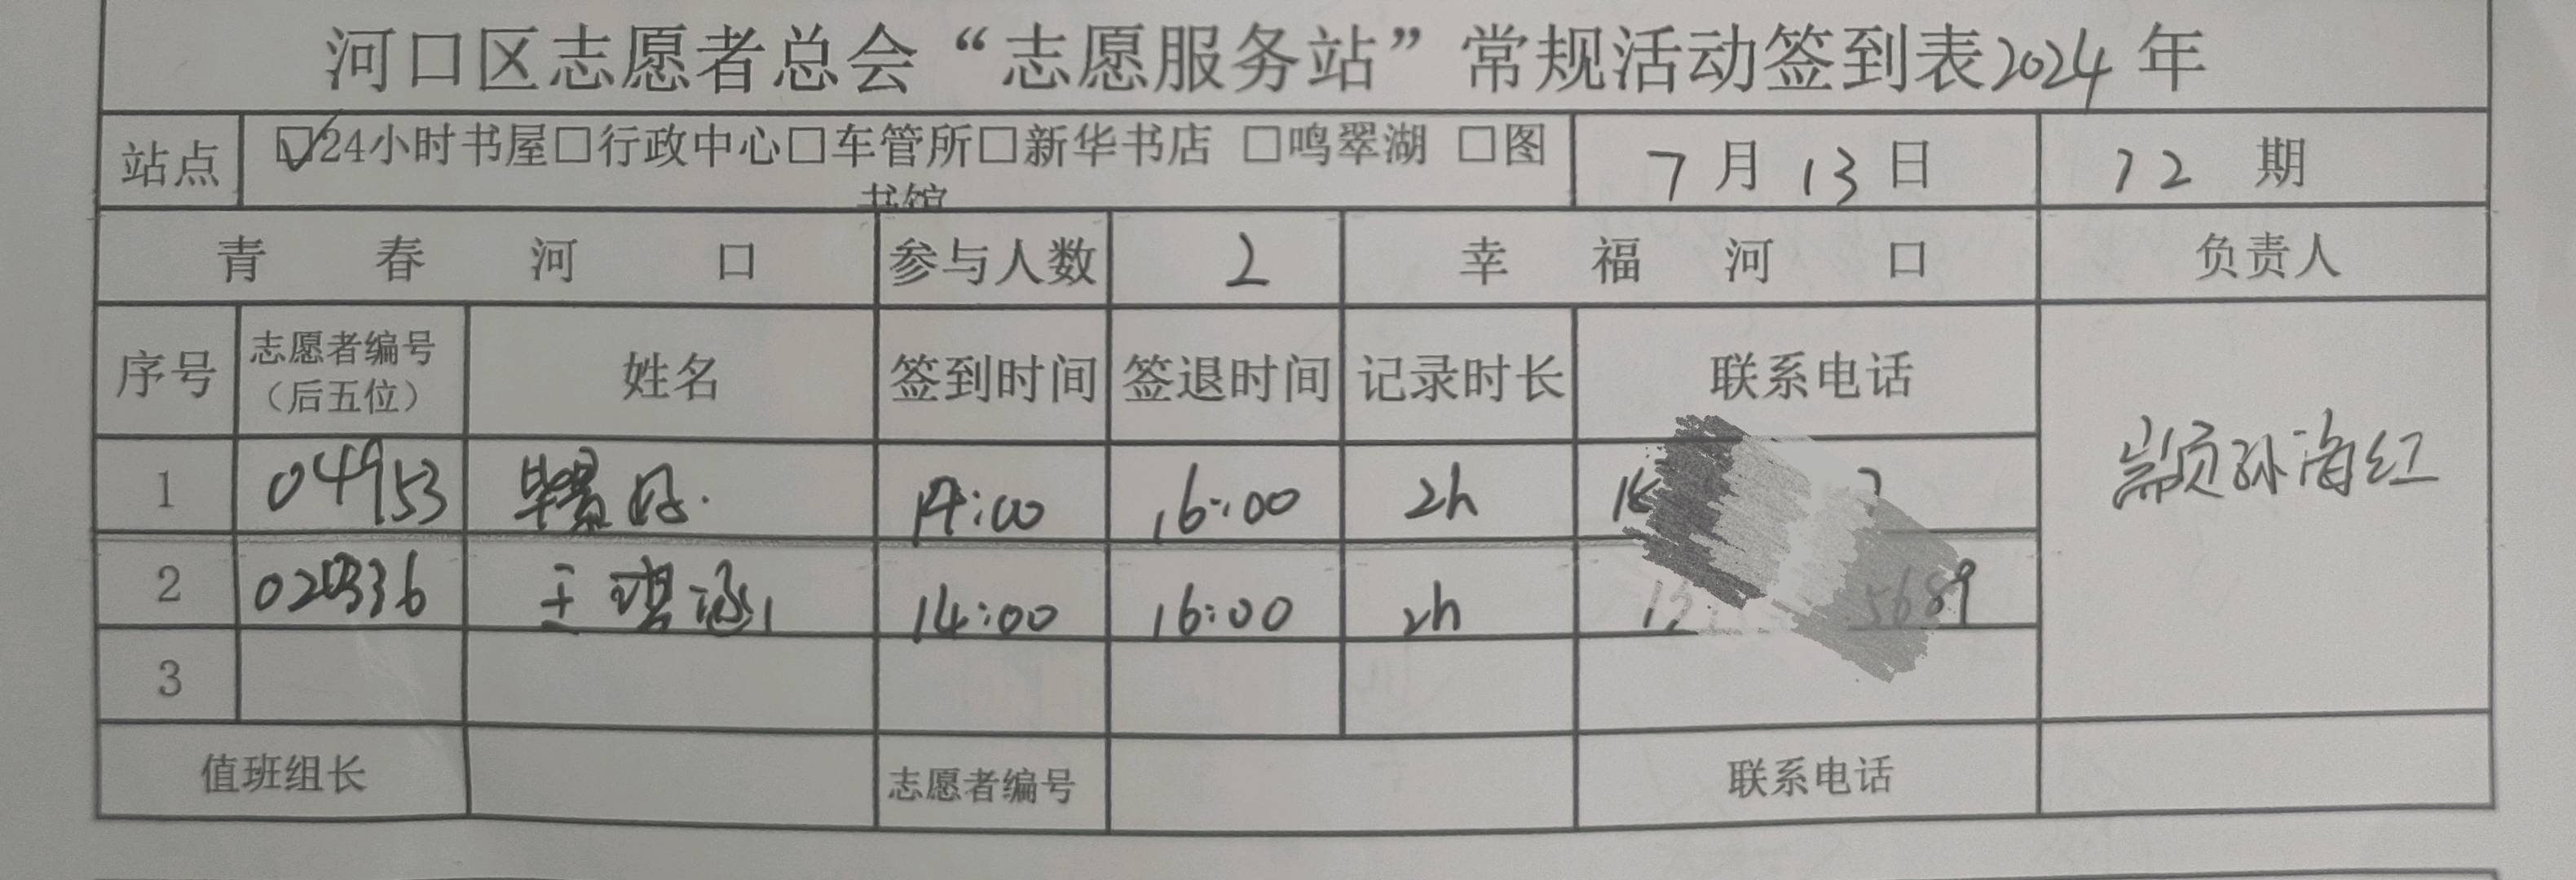 河口区志愿者总会“志愿服务站”常规活动签到表2024年
站点 ☑24小时书屋□行政中心□车管所□新华书店 □鸣翠湖 □图书馆 7月13日 72期
青春河口 参与人数 2 幸福河口 负责人
序号 志愿者编号（后五位） 姓名 签到时间 签退时间 记录时长 联系电话
1 04953 14:00 16:00 2h 孙海红
2 王琪涵 14:00 16:00 2h 5689
3
值班组长 志愿者编号 联系电话